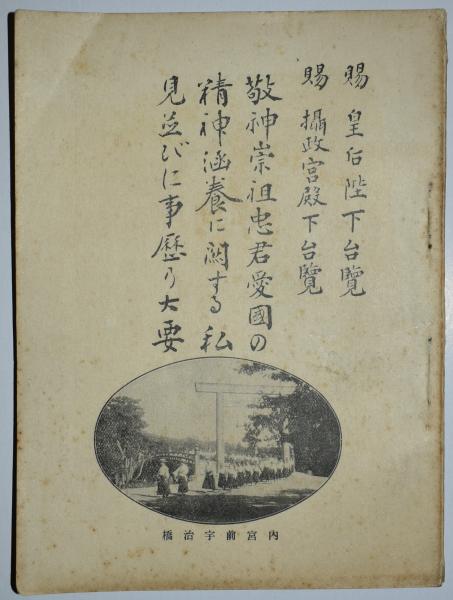 賜 皇后陛下台覽
賜 攝政宮殿下台覽
敬神崇祖忠君愛國の
精神涵養に関する私
見並びに事歷の大要
內宮前宇治橋